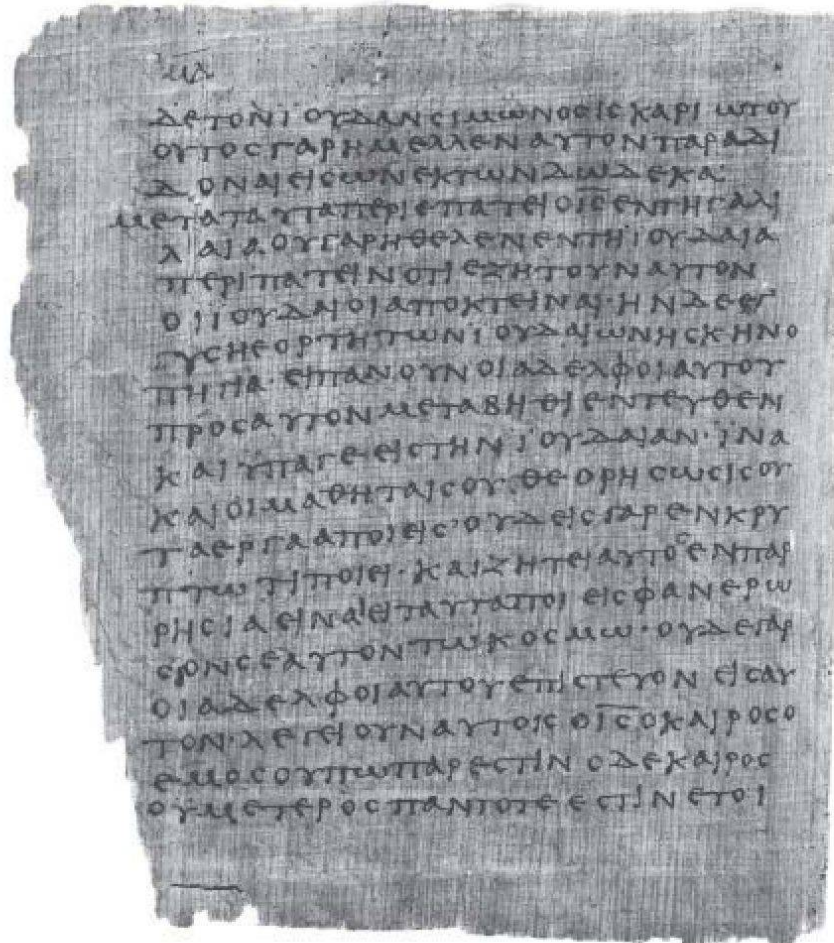 μα
δετονϊουδανσιμωνοσισκαριωτου
ουτοσγαρημελλεναυτονπαραδι
δοναιεισωνεκτωνδωδεκα:
μεταταυταπεριεπατειοι̅σ̅εντηγαλι
λαιαουγαρηθελενεντηϊουδαια
περιπατεινοτιεζητουναυτον
οιϊουδαιοιαποκτειναι·ηνδεεγ
γυσηεορτητωνϊουδαιωνησκηνο
πηγια·ειπανουνοιαδελφοιαυτου
προσαυτονμεταβηθιεντευθεν
καιϋπαγεειστηνϊουδαιαν·ϊνα
καιοιμαθηταισου·θεορησωσισου
ταεργααποιεισ·ουδεισγαρενκρυ
πτωτιποιει·καιζητειαυτοσενπαρ
ρησιαειναιειταυταποιεισφανερω
σονσεαυτοντωκοσμω·ουδεγαρ
οιαδελφοιαυτουεπιστευονεισαυ
τον·λεγειουναυτοισοι̅σ̅οκαιροσο
εμοσουπωπαρεστινοδεκαιροσ
οϋμετεροσπαντοτεεστινετοι